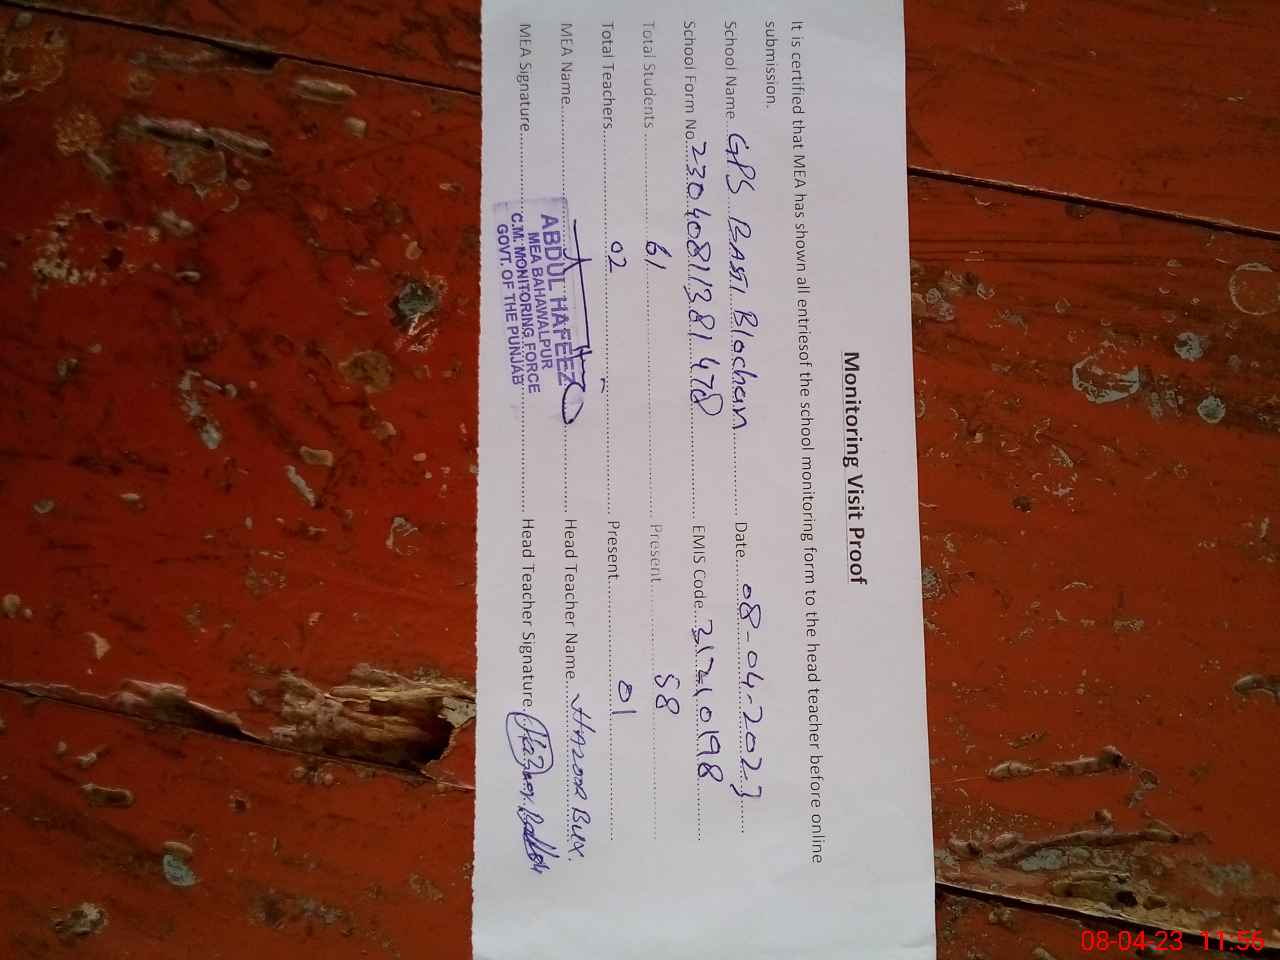 Monitoring Visit Proof
It is certified that MEA has shown all entriesof the school monitoring form to the head teacher before online
submission.
School Name GPS BASTI Blochan Date 08-04-2023
School Form No. 23040811381478 EMIS Code 31210198
Total Students 61 Present 58
Total Teachers 02 Present 01
MEA Name Head Teacher Name HAZOOR BUX.
MEA Signature Head Teacher Signature
ABDUL HAFEEZ
MEA BAHAWALPUR
C.M. MONITORING FORCE
GOVT. OF THE PUNJAB
08-04-23 11:56